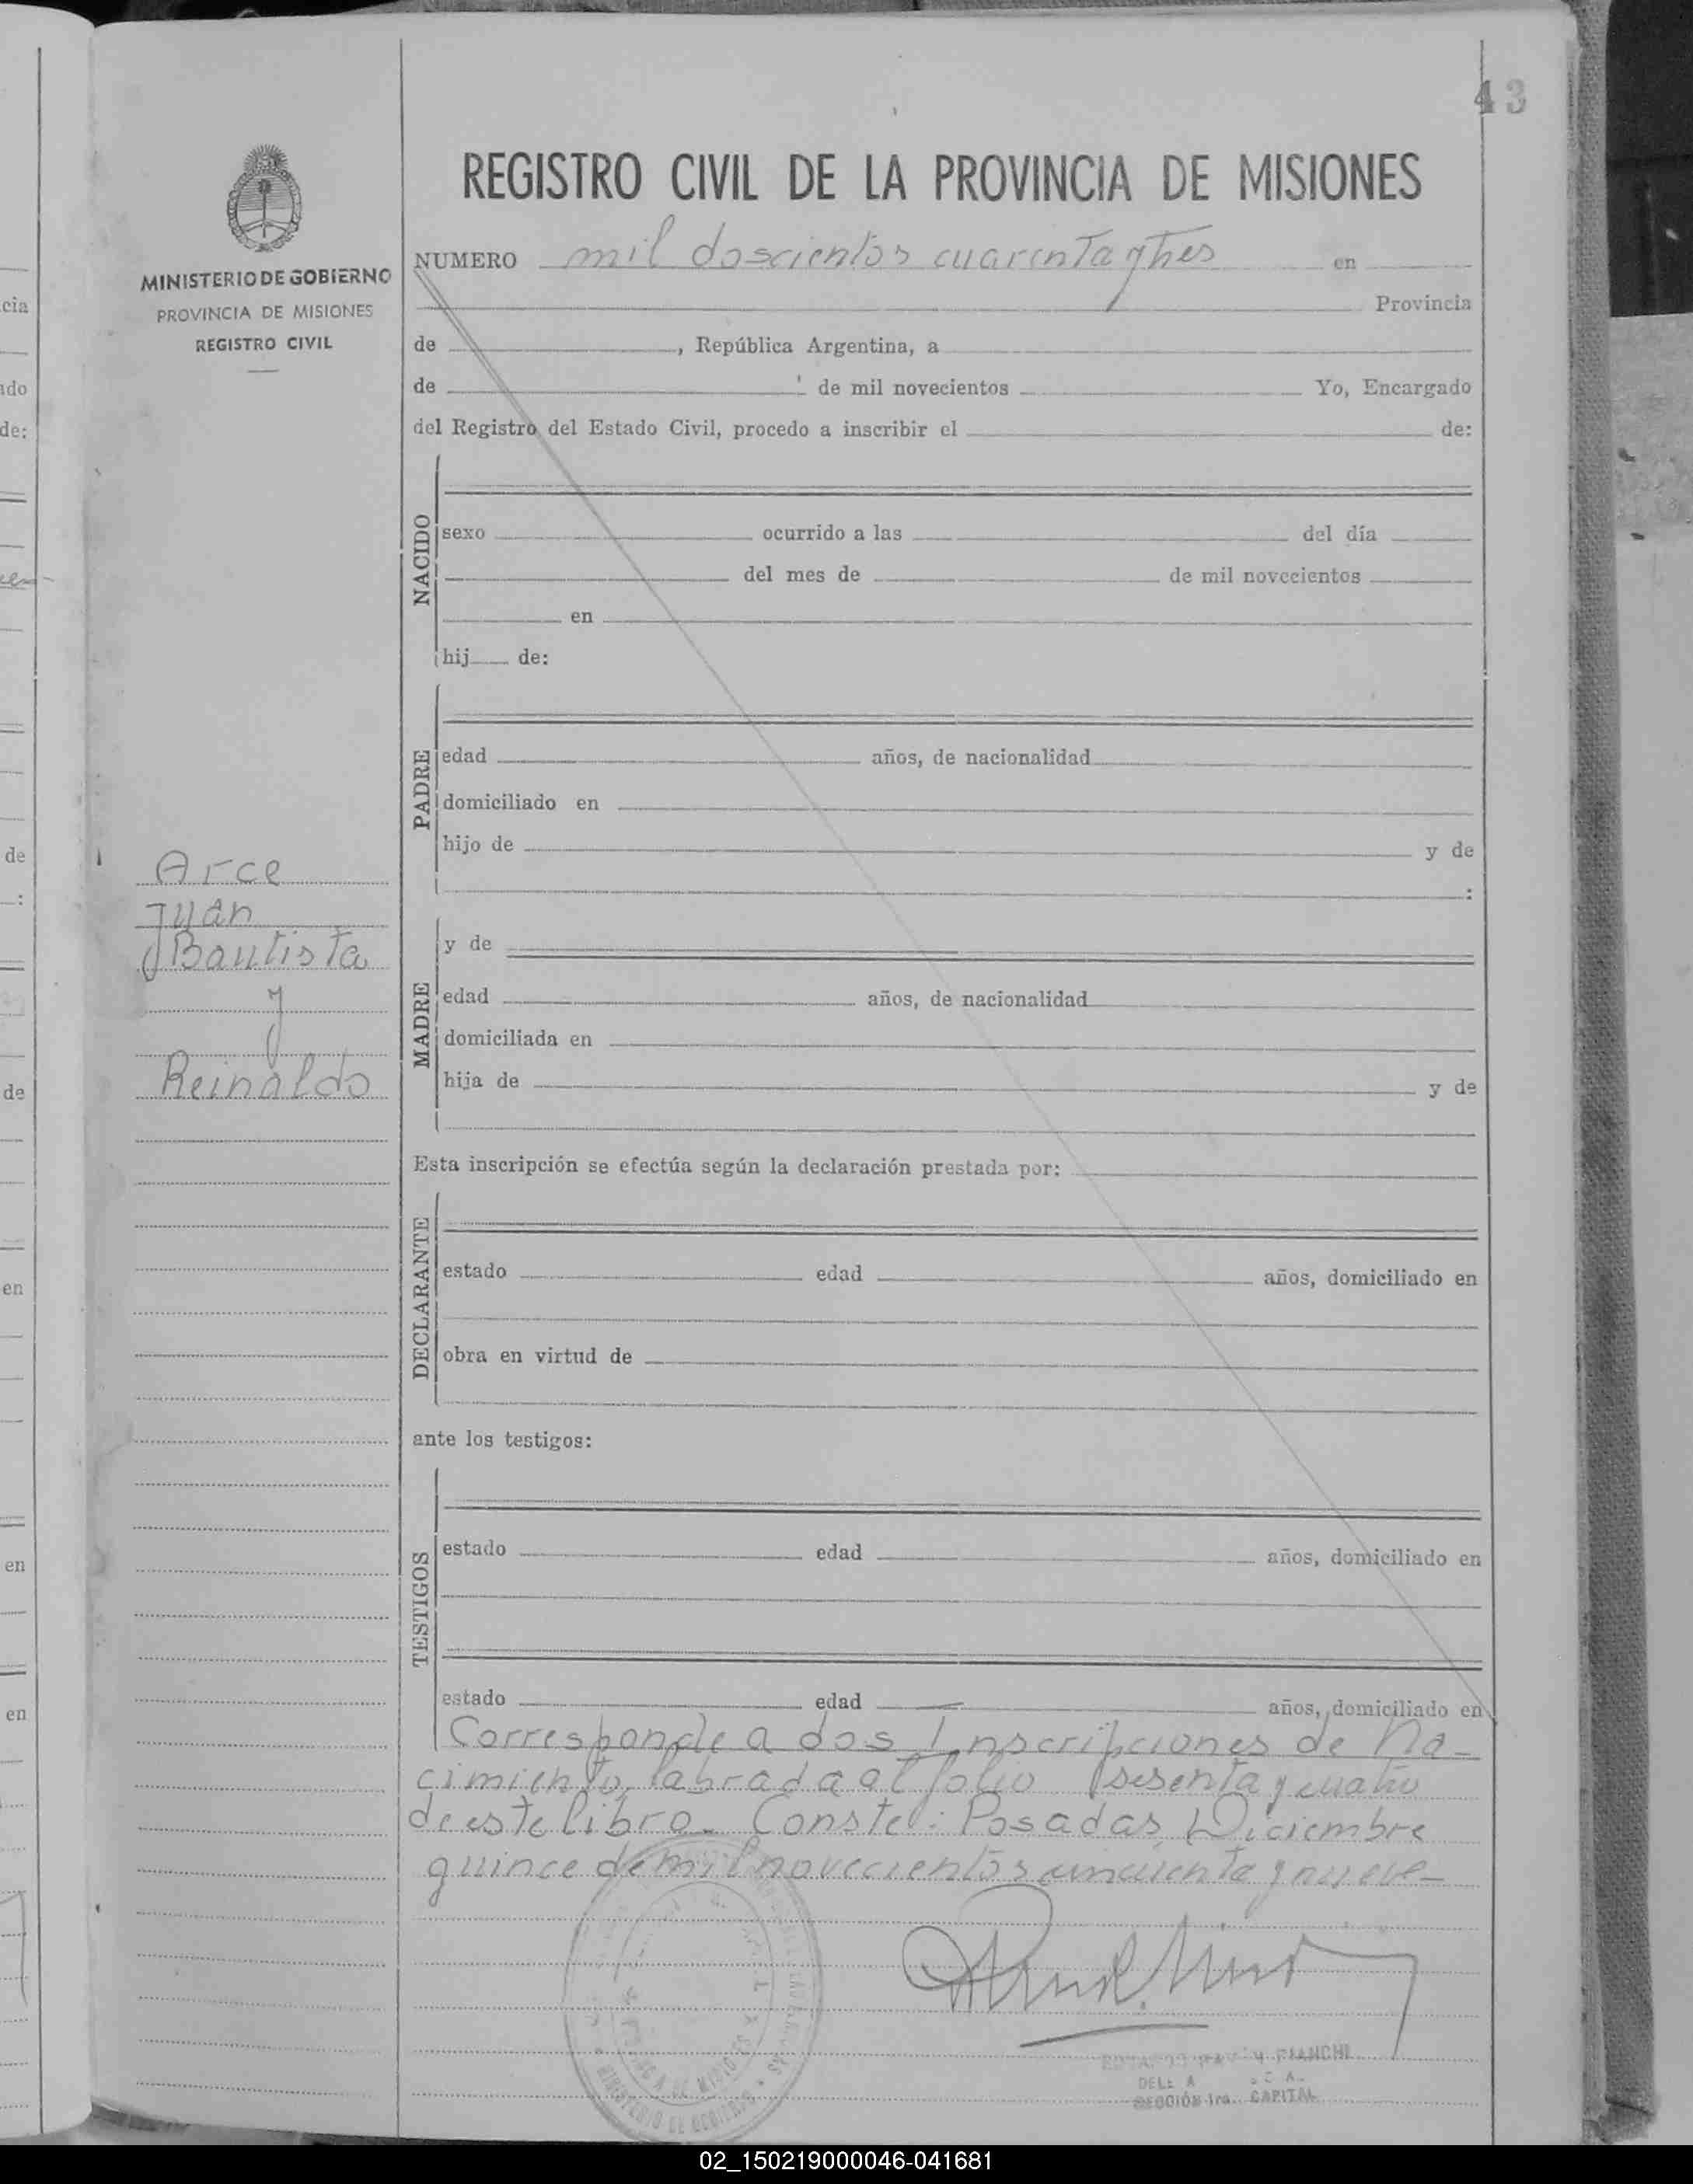 43
REGISTRO CIVIL DE LA PROVINCIA DE MISIONES
MINISTERIO DE GOBIERNO
PROVINCIA DE MISIONES
REGISTRO CIVIL
NUMERO mil doscientos cuarenta y tres en
Provincia
de , República Argentina, a
de de mil novecientos Yo, Encargado
del Registro del Estado Civil, procedo a inscribir el de:
NACIDO
sexo ocurrido a las del día
del mes de de mil novecientos
en
hij de:
PADRE
edad años, de nacionalidad
domiciliado en
hijo de y de
:
Arce
Juan
Bautista
y
Reinaldo
MADRE
y de
edad años, de nacionalidad
domiciliada en
hija de y de
Esta inscripción se efectúa según la declaración prestada por:
DECLARANTE
estado edad años, domiciliado en
obra en virtud de
ante los testigos:
TESTIGOS
estado edad años, domiciliado en
estado edad años, domiciliado en
Corresponde a dos Inscripciones de Na-
cimiento, labrada al folio sesenta y cuatro
de este libro. Conste: Posadas, Diciembre
quince de mil novecientos cincuenta y nueve-
BIANCHI
SECCIÓN 1ra. CAPITAL
cia
ado
de:
de
:
de
en
en
en
02_150219000046-041681